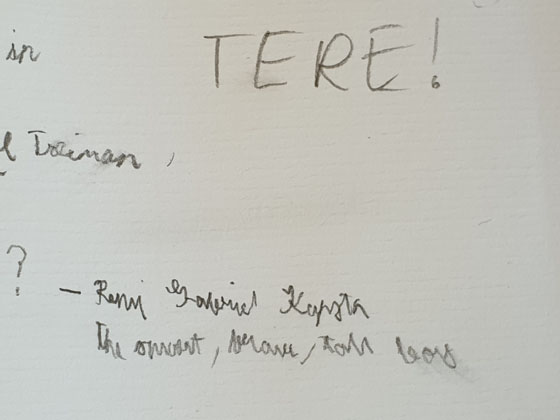 in TERE!
Taiman,
? – Remi Gabriel Kapsta
The smart, brave, tall boy